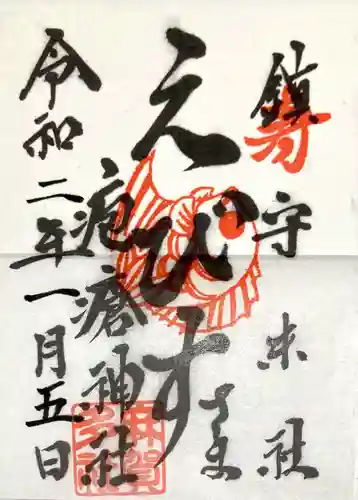 鎮守
末社
寿
えびす
さま
疱瘡神社
令和二年一月五日